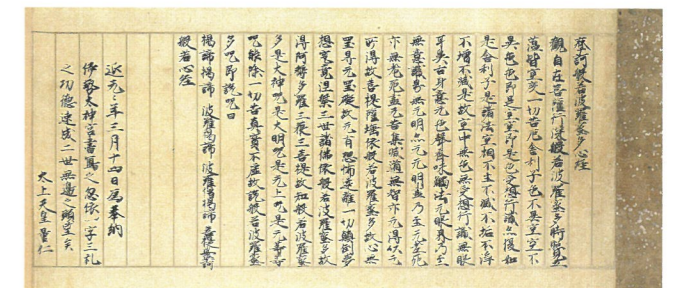 摩訶般若波羅蜜多心経
觀自在菩薩行深般若波羅蜜多時照見五
蘊皆空度一切苦厄舎利子色不異空空不
異色色即是空空即是色受想行識亦復如
是舎利子是諸法空相不生不滅不垢不浄
不増不減是故空中無色無受想行識無眼
耳鼻舌身意无色聲香味觸法无眼界乃至
無意識界無无明亦无无明盡乃至无老死
亦无老死盡无苦集滅道無智亦无得以无
所得故菩提薩埵依般若波羅蜜多故心無
罣礙无罣礙故无有恐怖遠離一切顛倒夢
想究竟涅槃三世諸佛依般若波羅蜜多故
得阿耨多羅三藐三菩提故知般若波羅蜜
多是大神呪是大明呪是无上呪是无等等
呪能除一切苦真實不虚故説般若波羅蜜
多呪即説呪曰
揭諦揭諦 波羅揭諦 波羅僧揭諦 菩提莎訶
般若心経
延元々年三月十四日為奉納
伊勢太神宮書寫之忽依一字三礼
之功徳速成二世無邊之願望矣
太上天皇量仁